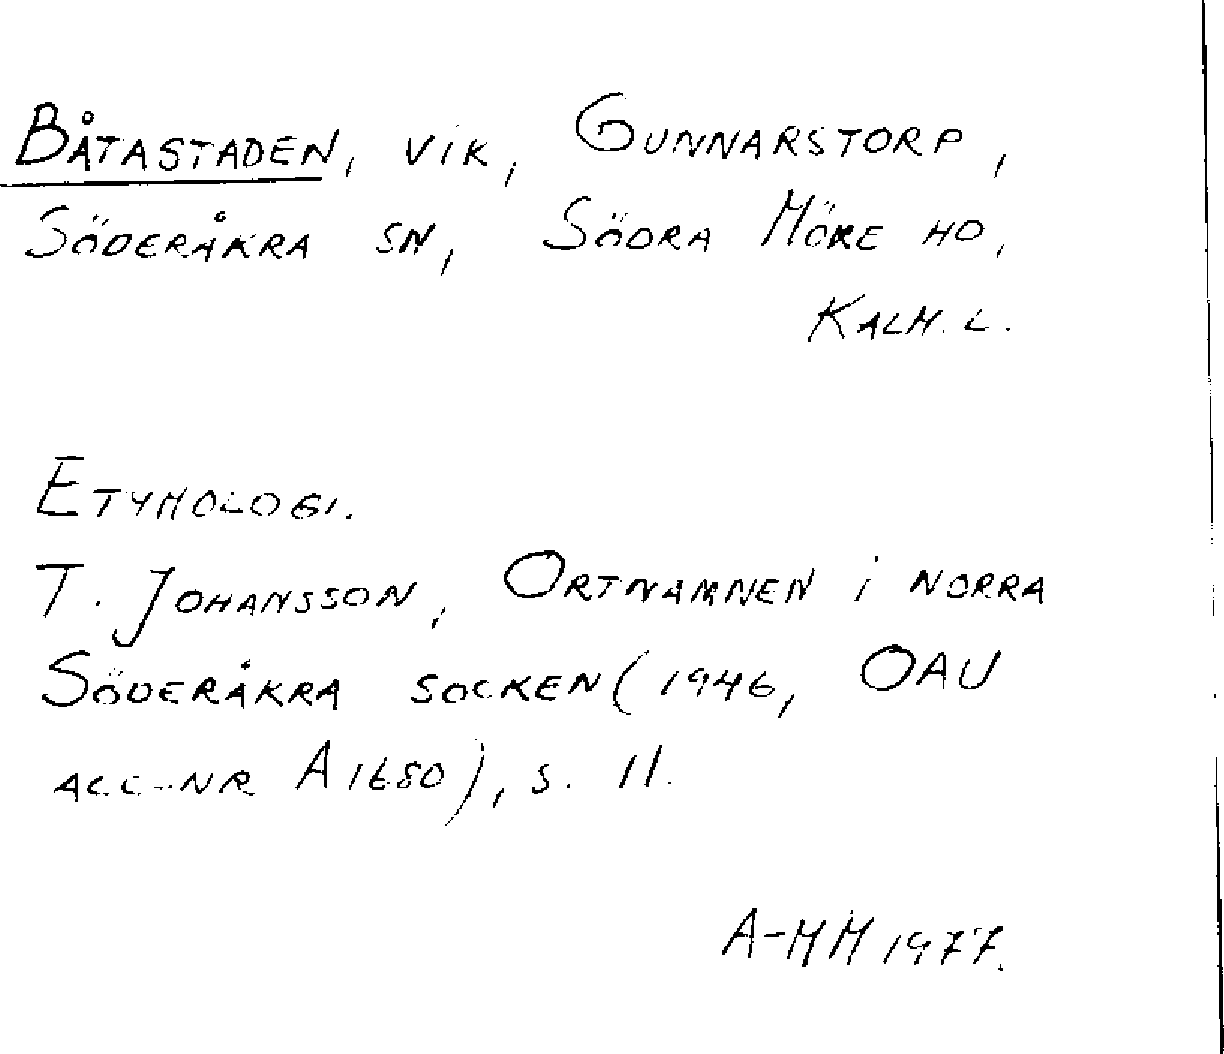 BÅTASTADEN, VIK, GUNNARSTORP,
SÖDERÅKRA SN, SÖDRA MÖRE HD,
KALM. L.
ETYMOLOGI.
T. JOHANSSON, ORTNAMNEN I NORRA
SÖDERÅKRA SOCKEN (1946, OAU
ACC-NR A1680), S. 11.
A-MM 1977.